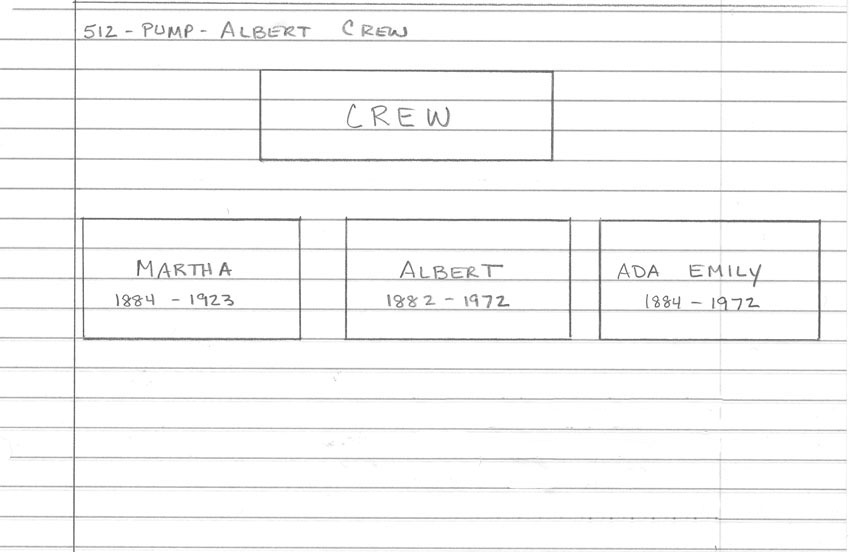 512 - PUMP - ALBERT CREW
CREW
MARTHA
1884 - 1923
ALBERT
1882 - 1972
ADA EMILY
1884 - 1972